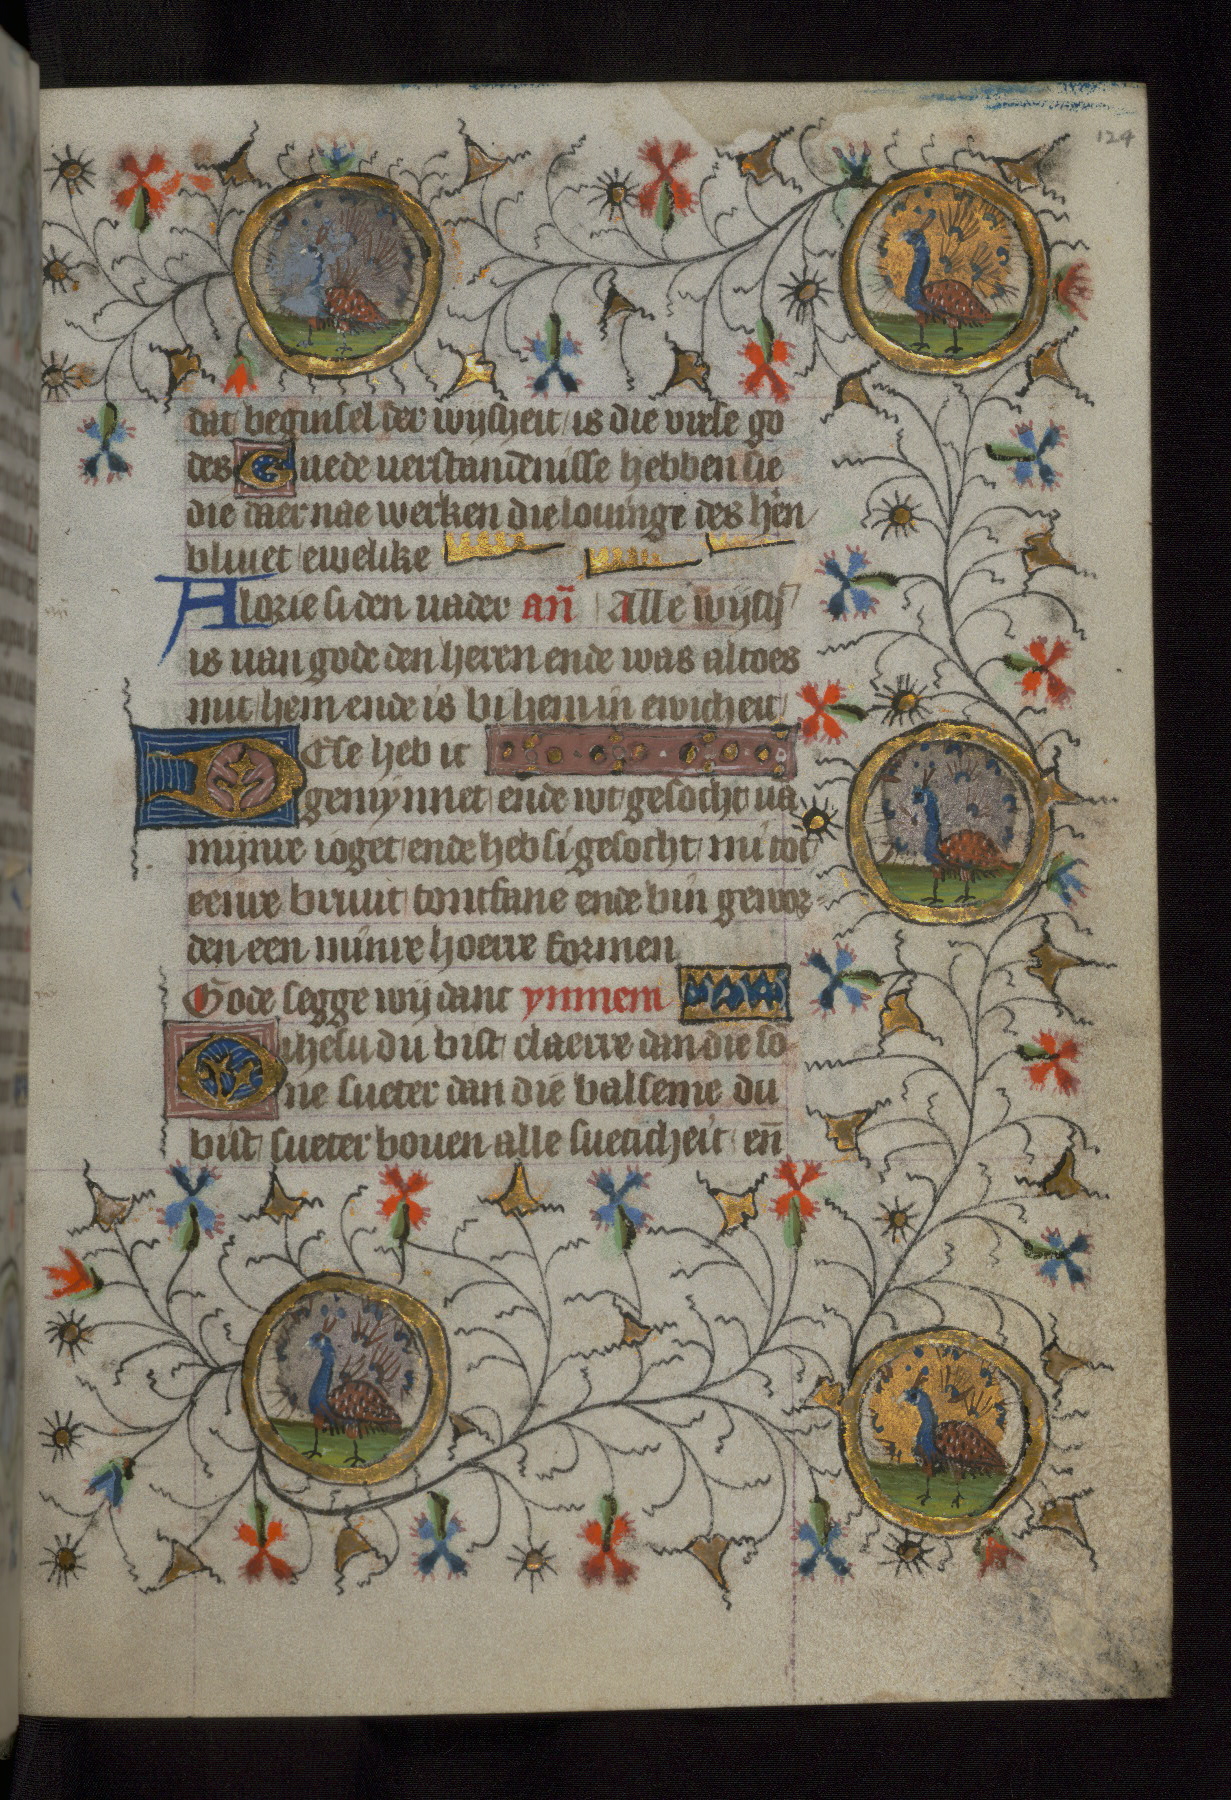 124
dat beginsel der wijsheit is die vrese go
des Guede uerstandenisse hebben sie
die daer nae werken die louinge des hēn
bliuet ewelike
Glorie si den uader an̄ Alle wijsh
is uan gode den heren ende was altoes
mit hem ende is bi hem in ewicheit
Dese heb ic
gemynnet ende wt gesocht uā
mijnre ioget ende heb si gesocht mi tot
eenre bruut tontfane ende bin gewor
den een minre hoerre formen
Gode segge wij danc ymnem
O ihesu du bist claerre dan die so
ne sueter dan die balseme du
bist sueter bouen alle sueticheit en̄